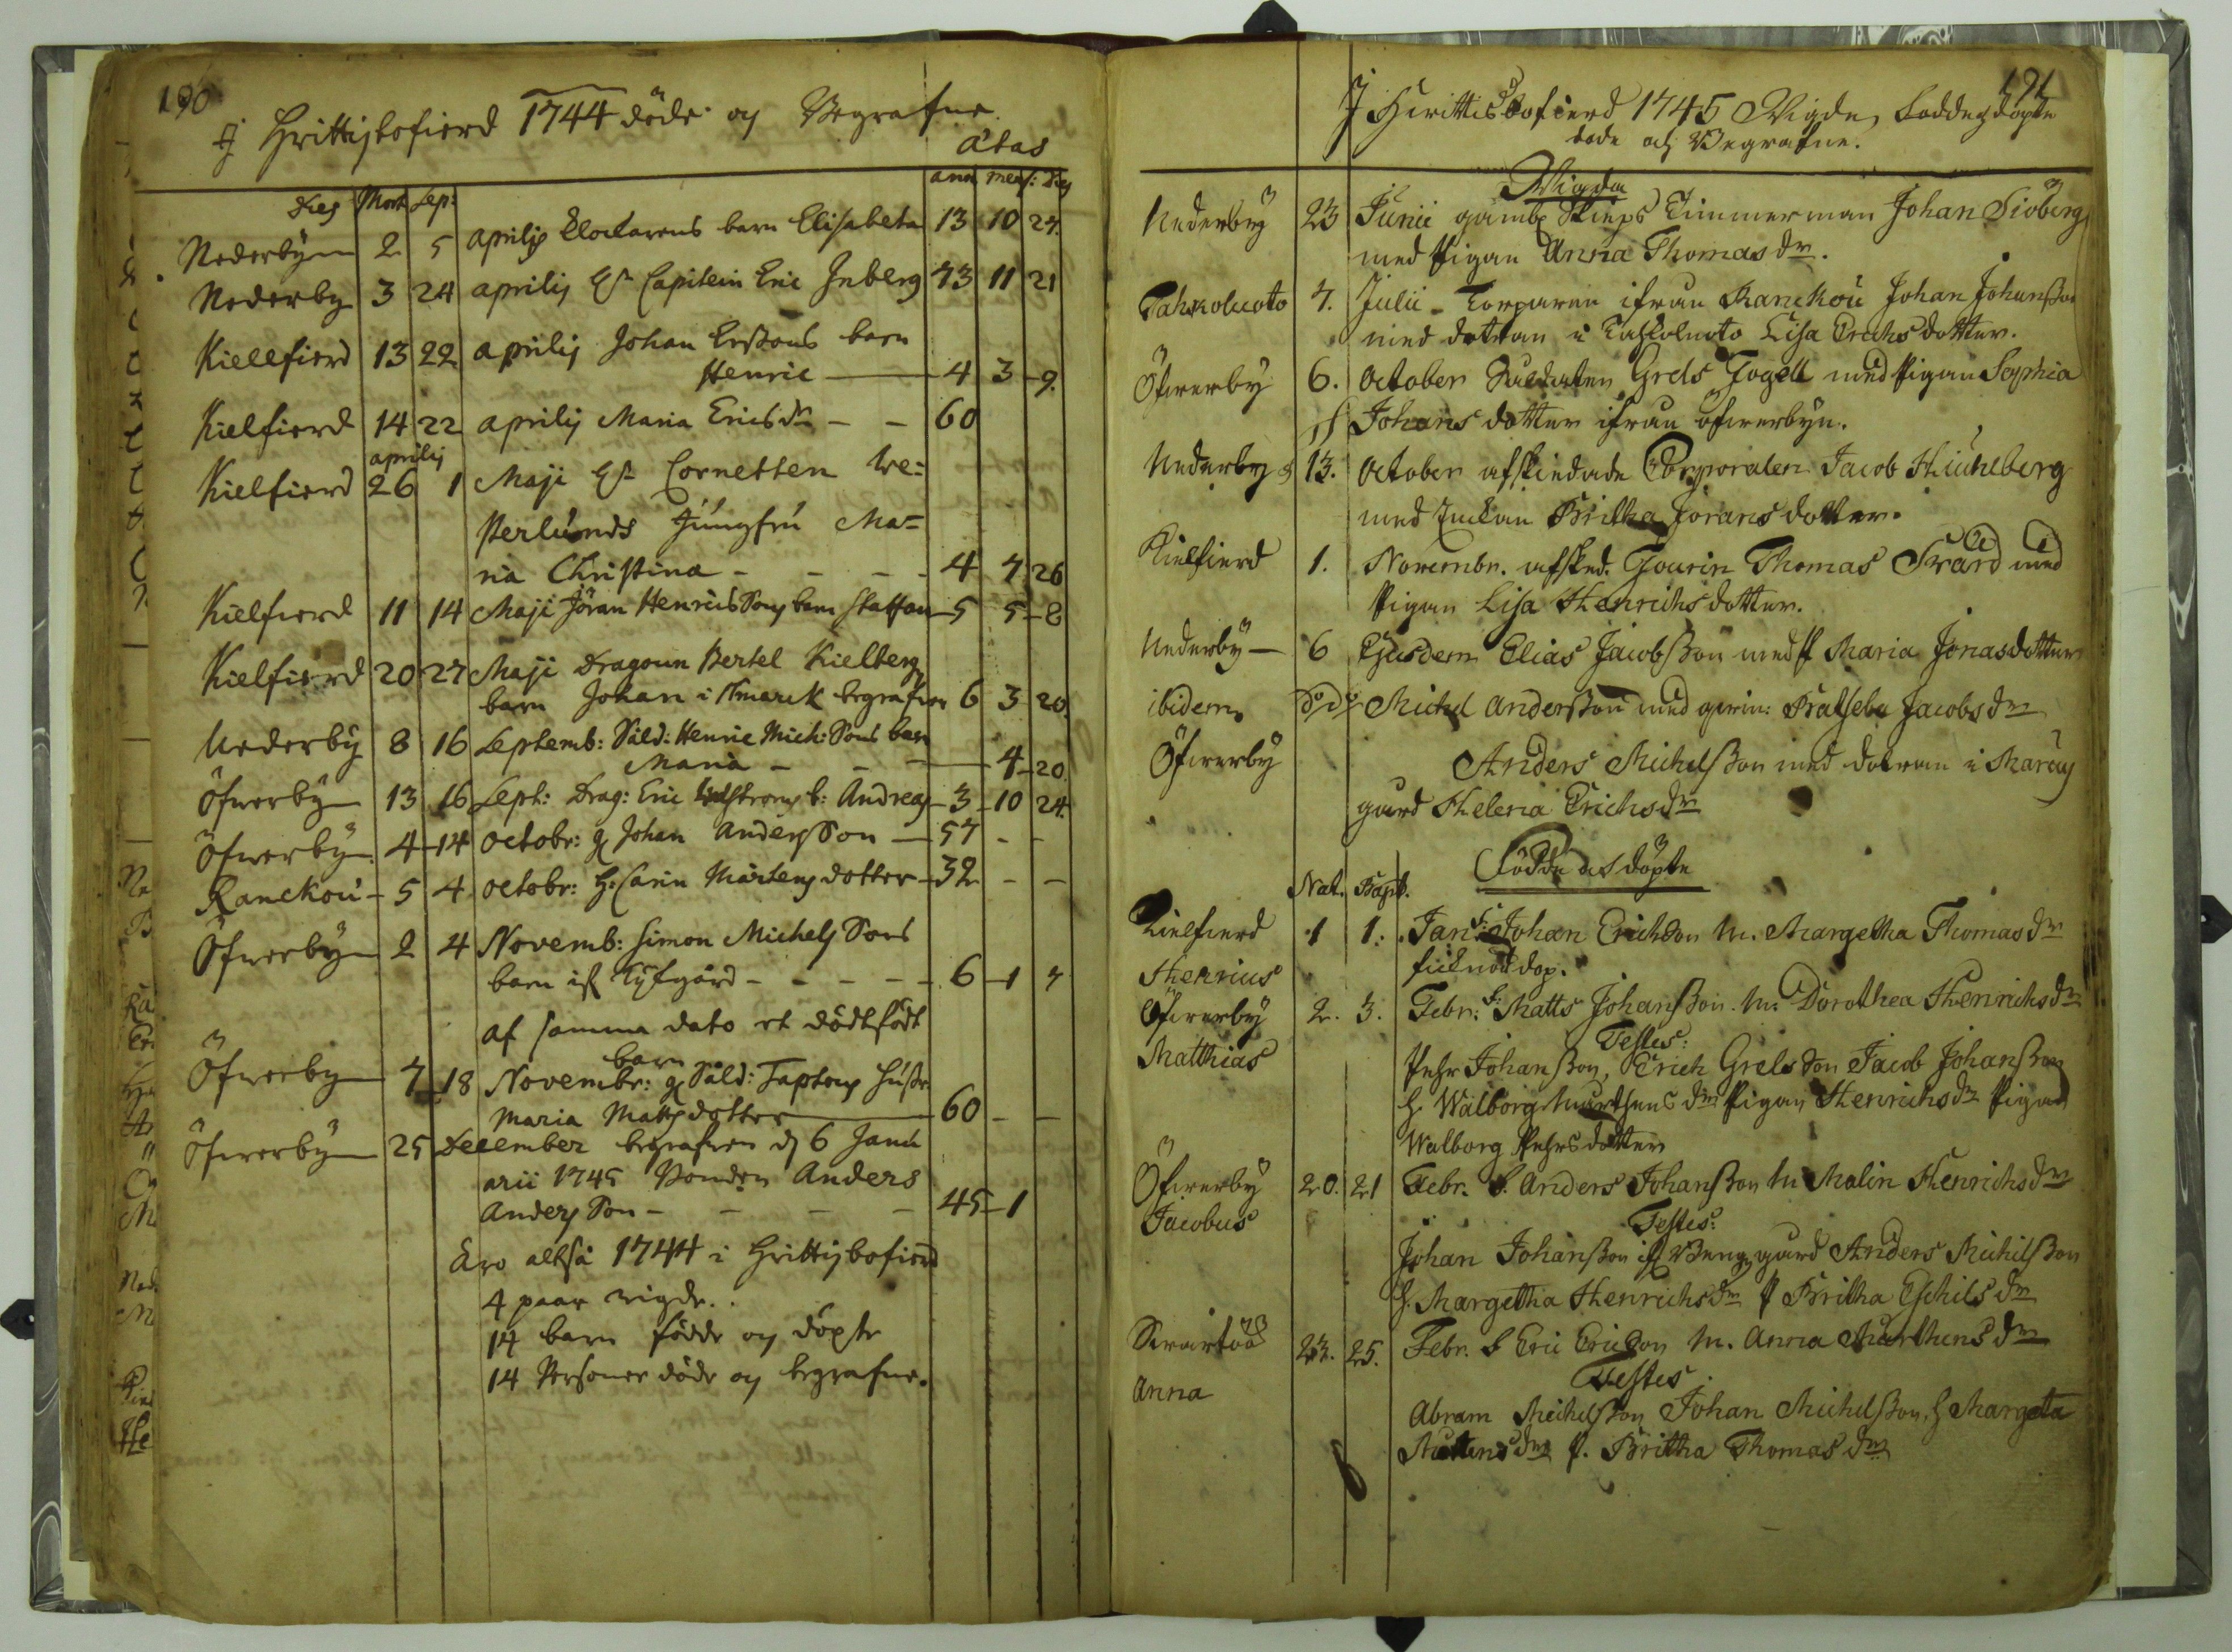 190
J Hrittisbofierd 1744 döde och Begrafne.
Ætas
Dies Mort. Sep: ann mens: dies
Nederbyn 2 5 Aprilis Clockarens barn Elisabeta 13 10 27.
Nederby 3 24 aprilis Capitein Eric Inberg 73 11 21
Kiellfierd 13 22 aprilis Johan Erssons barn
Henric 4 3 9.
Kielfierd 14 22 aprilis Maria Ericsdr 60
aprilis
Kielfierd 26 1 Maji Cornetten We=
sterlunds Jungfru Ma=
ria Christina 4 7 26
Kielfierd 11 14 Maji Jöran Henricsons barn Staffan 5 5 8
Kielfierd 20 27 Maji Dragoun Bertel Kielberg
barn Johan i begrafven 6 3 20.
Nederby 8 16 Septemb: Sold: Henric Mich: Sons barn
Maria 4 20.
Öfwerbyn 13 16 Sept: Drag: Eric b: Andreas 3 10 24.
Öfwerbyn 4 14 octobr: g Johan Andersson 57 - -
Ranckou 5 4 octobr: H: Carin Mårtens dotter 32 - -
Öfwerbyn 2 4 Novemb: Simon Michels Sons
barn if 6 1 7
af samma dato et dödtfödt
barn
Öfwerby 7 18 Novembr: g Sold: Taptous hust:
Maria Matts dotter 60 - -
Öfwerbyn 25 December begrafven d 6 Janu
arii 1745 Bonden Anders
Anders Son 45 1
Äro altså 1744 i Hrittisbofierd
4 paar vigde.
14 barn födde och döpte
14 Personer döde och begrafne.
191
J Hirittisbofierd 1745 Wigde, Födde, döpte
döde och Begrafne.
Wigda
Nederby 23 Junii gamb. Skieps Timmerman Johan Sioberg
med Pigan Anna Thomasdr.
Tahkoluoto 7. Julii Torparen ifrån Ranckou Johan Johansson
med dotran i Tahkoluoto Lisa Erichsdotter.
Öfwerby 6. October Soldaten Grels Fogell med Pigan Sophia
Johans dotter ifrån öfwerbyn.
Nederby 13. October afskiedade Corporalen Jacob
med Enckan Britha Joransdotter.
Kielfierd 1. Novembr. afsked. Thomas Svärd med
Pigan Lisa Henrichsdotter.
Nederby 6 Ejusdem Elias Jacobsson med P Maria Jonasdotter
ibidem do do Michel Andersson med Batseba Jacobsdr
Öfwerby Anders Michelsson med dotran i Marcus
gård Helena Erichsdr
Födde och döpte
Nat. Bapt.
Kielfierd 1 1. Jan: F: Johan Erichson M. Margetha Thomasdr
Henricus fick nöddop.
Öfwerby 2. 3. Febr: F: Matts Johansson. M. Dorothea Henrichsdr
Matthias Testes:
Pehr Johansson, Erich Grelsson Jacob Johansson
H Walborg Marthens dr Pigan Henrichsdr Pigan
Walborg Pehrsdotter
Öfwerby 20. 21 Febr. F. Anders Johansson M Malin Henrichsdr
Jacobus Testes:
Johan Johansson if Beng gård Anders Michelsson
H. Margetha Henrichsdr P Britha Eschilsdr
Swartöö 23. 25. Febr. F Eric Ericson M. Anna Marthensdr
Testes.
Anna
Abram Michelsson Johan Michelsson, H Margeta
P. Britha Thomasdr